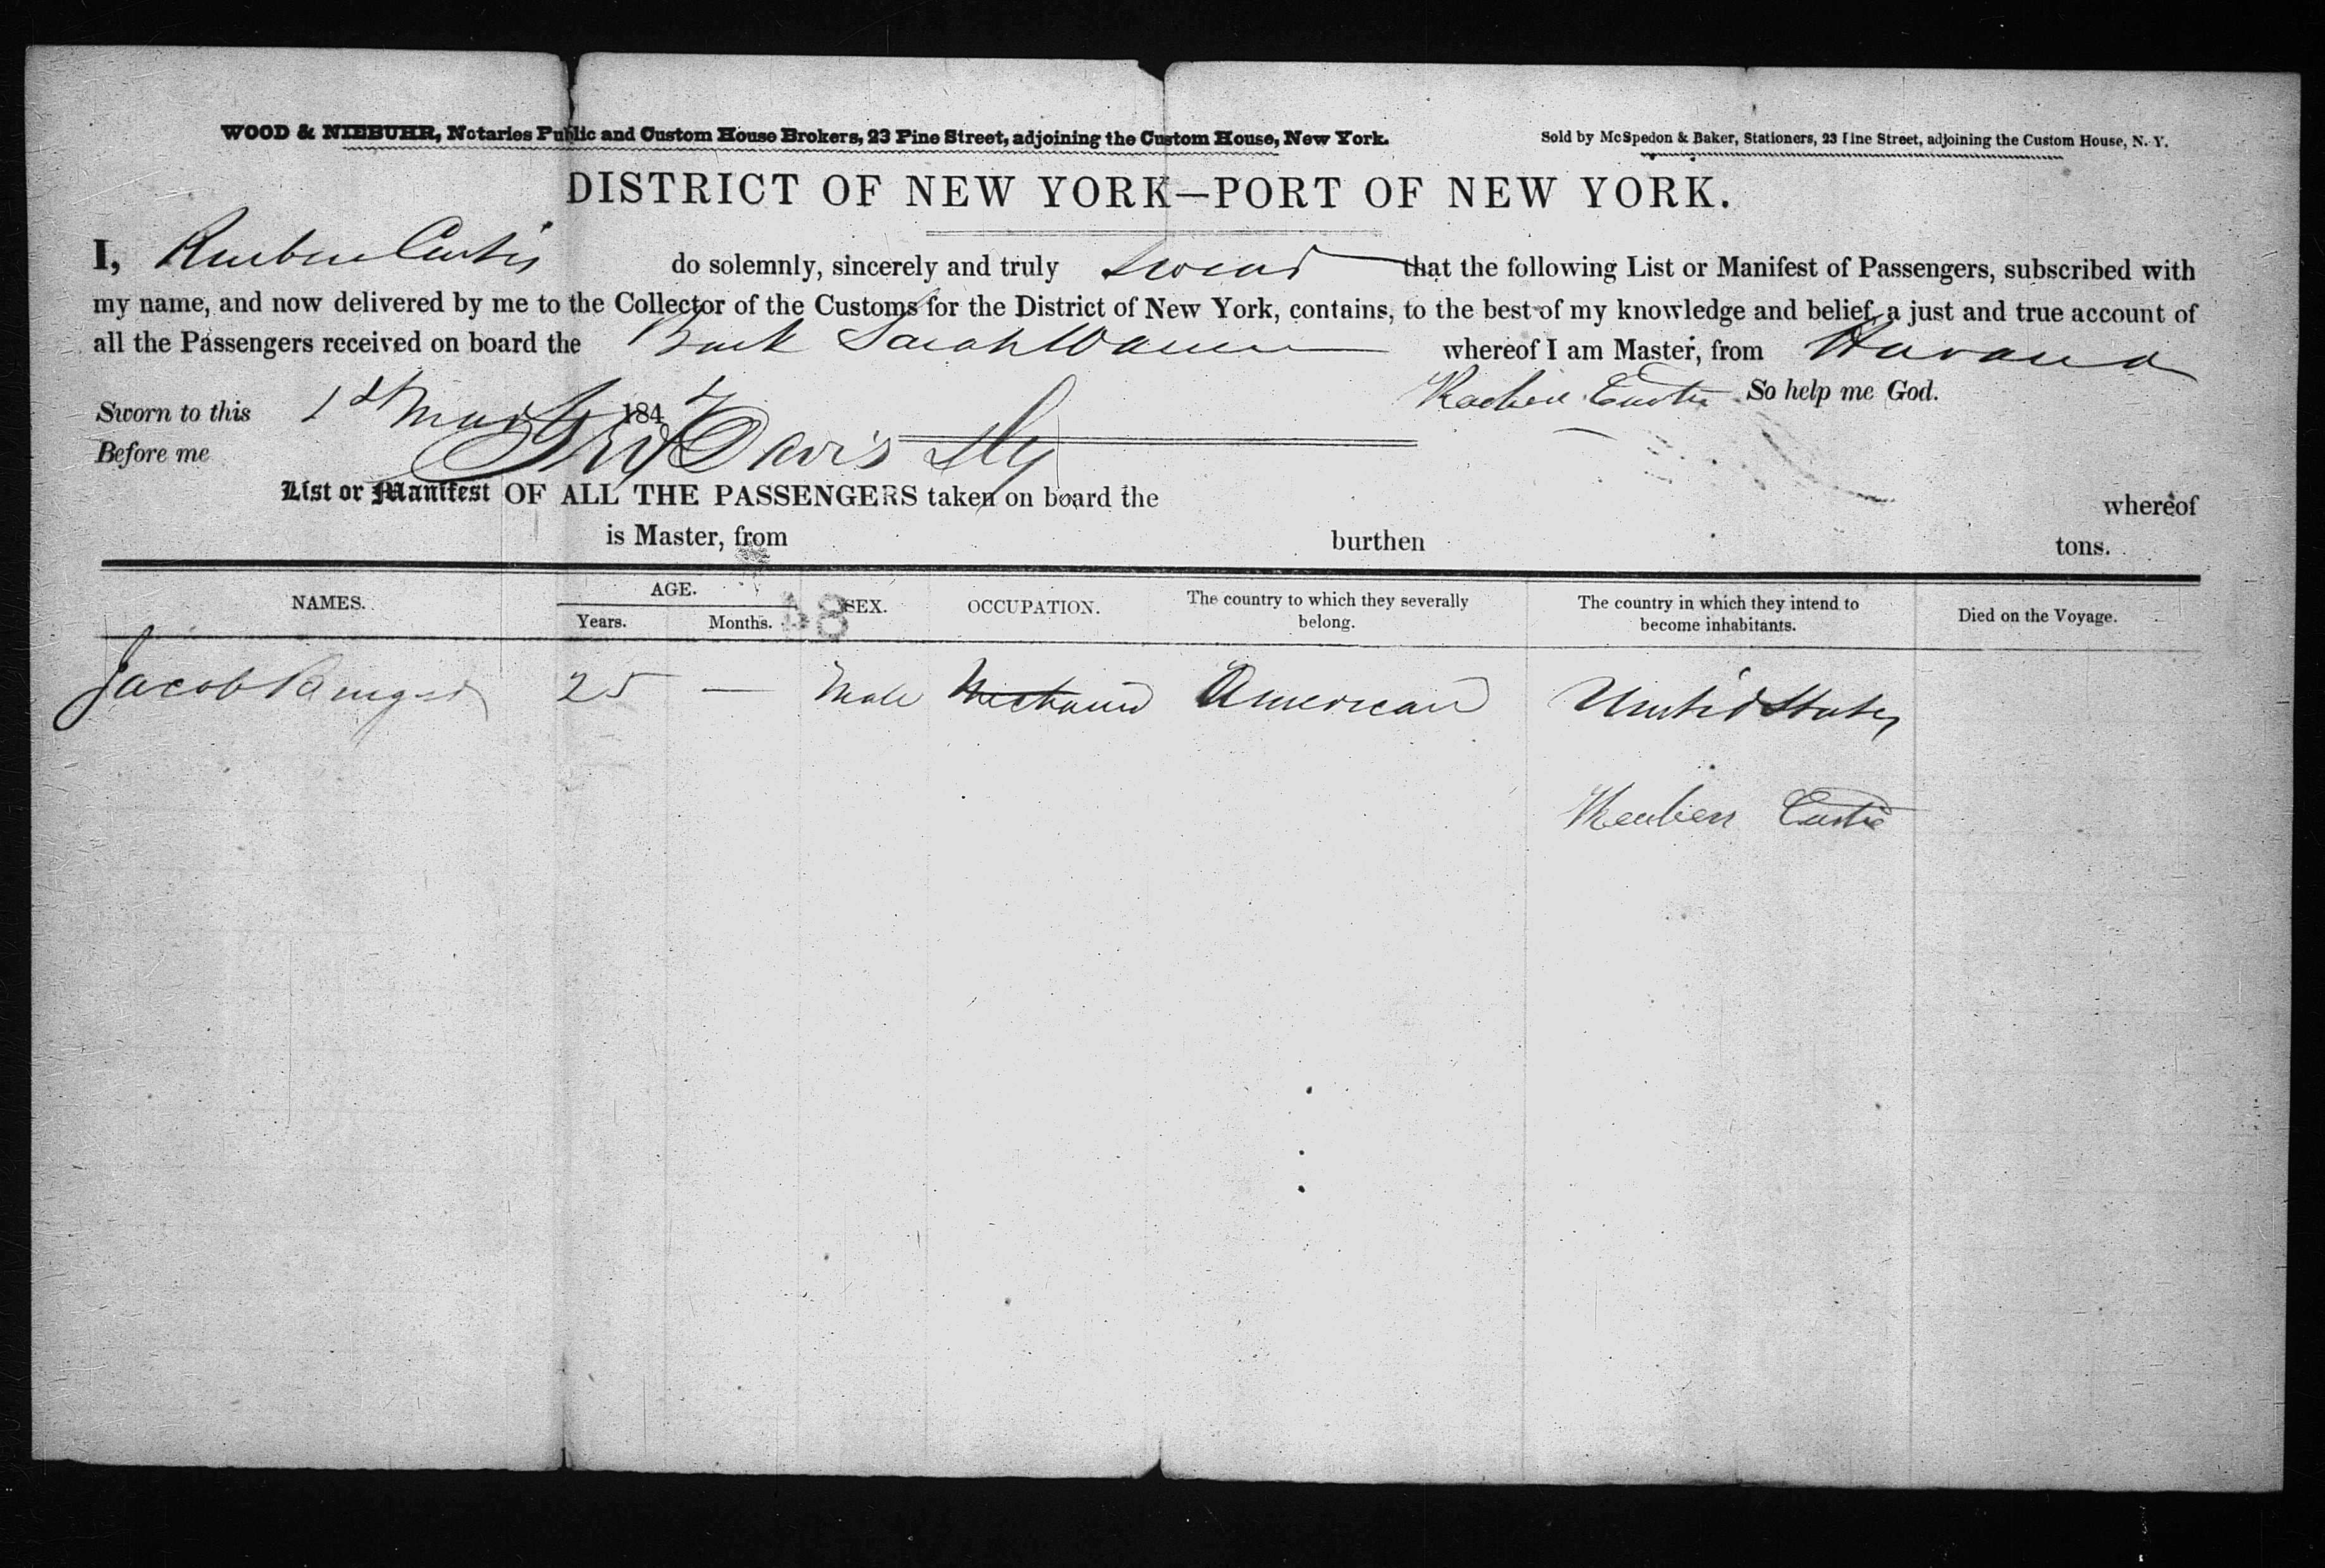 WOOD & NIEBUHR, Notaries Public and Custom House Brokers, 23 Pine Street, adjoining the Custom House, New York.
Sold by McSpedon & Baker, Stationers, 23 Pine Street, adjoining the Custom House, N. Y.
DISTRICT OF NEW YORK—PORT OF NEW YORK.
I, Reuben Curtis do solemnly, sincerely and truly swear that the following List or Manifest of Passengers, subscribed with
my name, and now delivered by me to the Collector of the Customs for the District of New York, contains, to the best of my knowledge and belief, a just and true account of
all the Passengers received on board the Bark Sarah Warren whereof I am Master, from Havana
Reuben Curtis So help me God.
Sworn to this 1st March 1847
Before me Davis Dy
List or Manifest OF ALL THE PASSENGERS taken on board the whereof
is Master, from burthen tons.
NAMES. AGE. SEX. OCCUPATION. The country to which they severally belong. The country in which they intend to become inhabitants. Died on the Voyage.
Years. Months.
Jacob 25 — Male American United States
Reuben Curtis